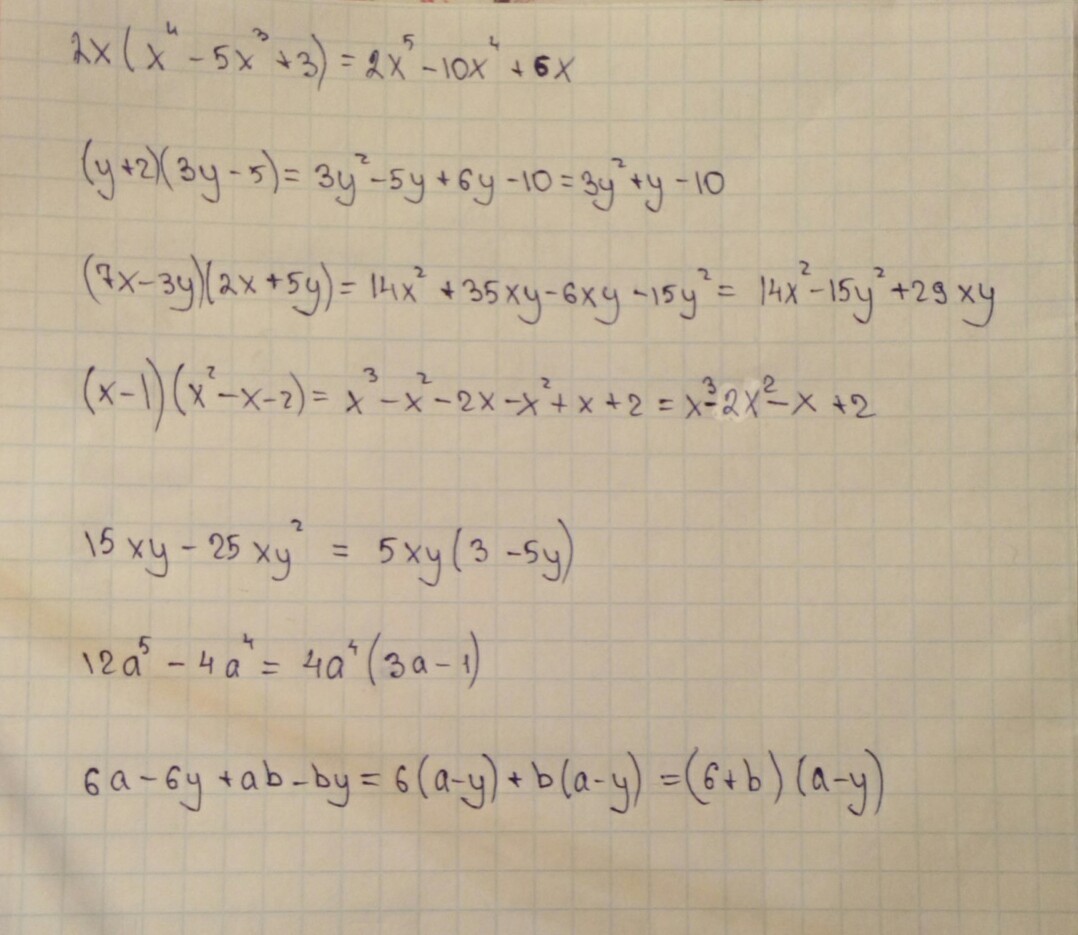 2x(x⁴ - 5x³ + 3) = 2x⁵ - 10x⁴ + 6x
(y+2)(3y - 5) = 3y² - 5y + 6y - 10 = 3y² + y - 10
(7x - 3y)(2x + 5y) = 14x² + 35xy - 6xy - 15y² = 14x² - 15y² + 29xy
(x - 1)(x² - x - 2) = x³ - x² - 2x - x² + x + 2 = x³ - 2x² - x + 2
15xy - 25xy² = 5xy(3 - 5y)
12a⁵ - 4a⁴ = 4a⁴(3a - 1)
6a - 6y + ab - by = 6(a - y) + b(a - y) = (6 + b)(a - y)